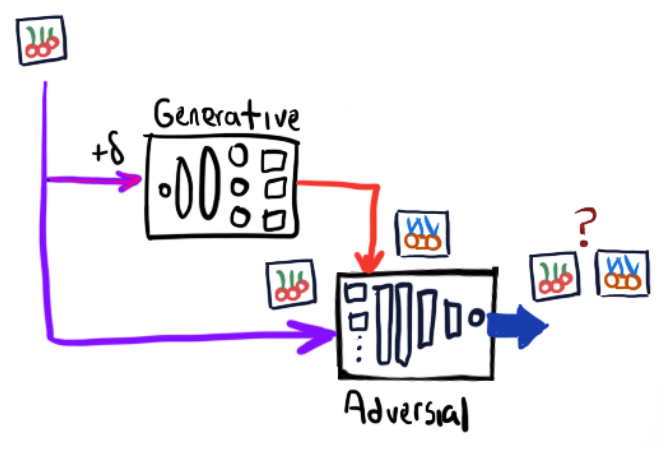 Generative
+δ
?
Adversial